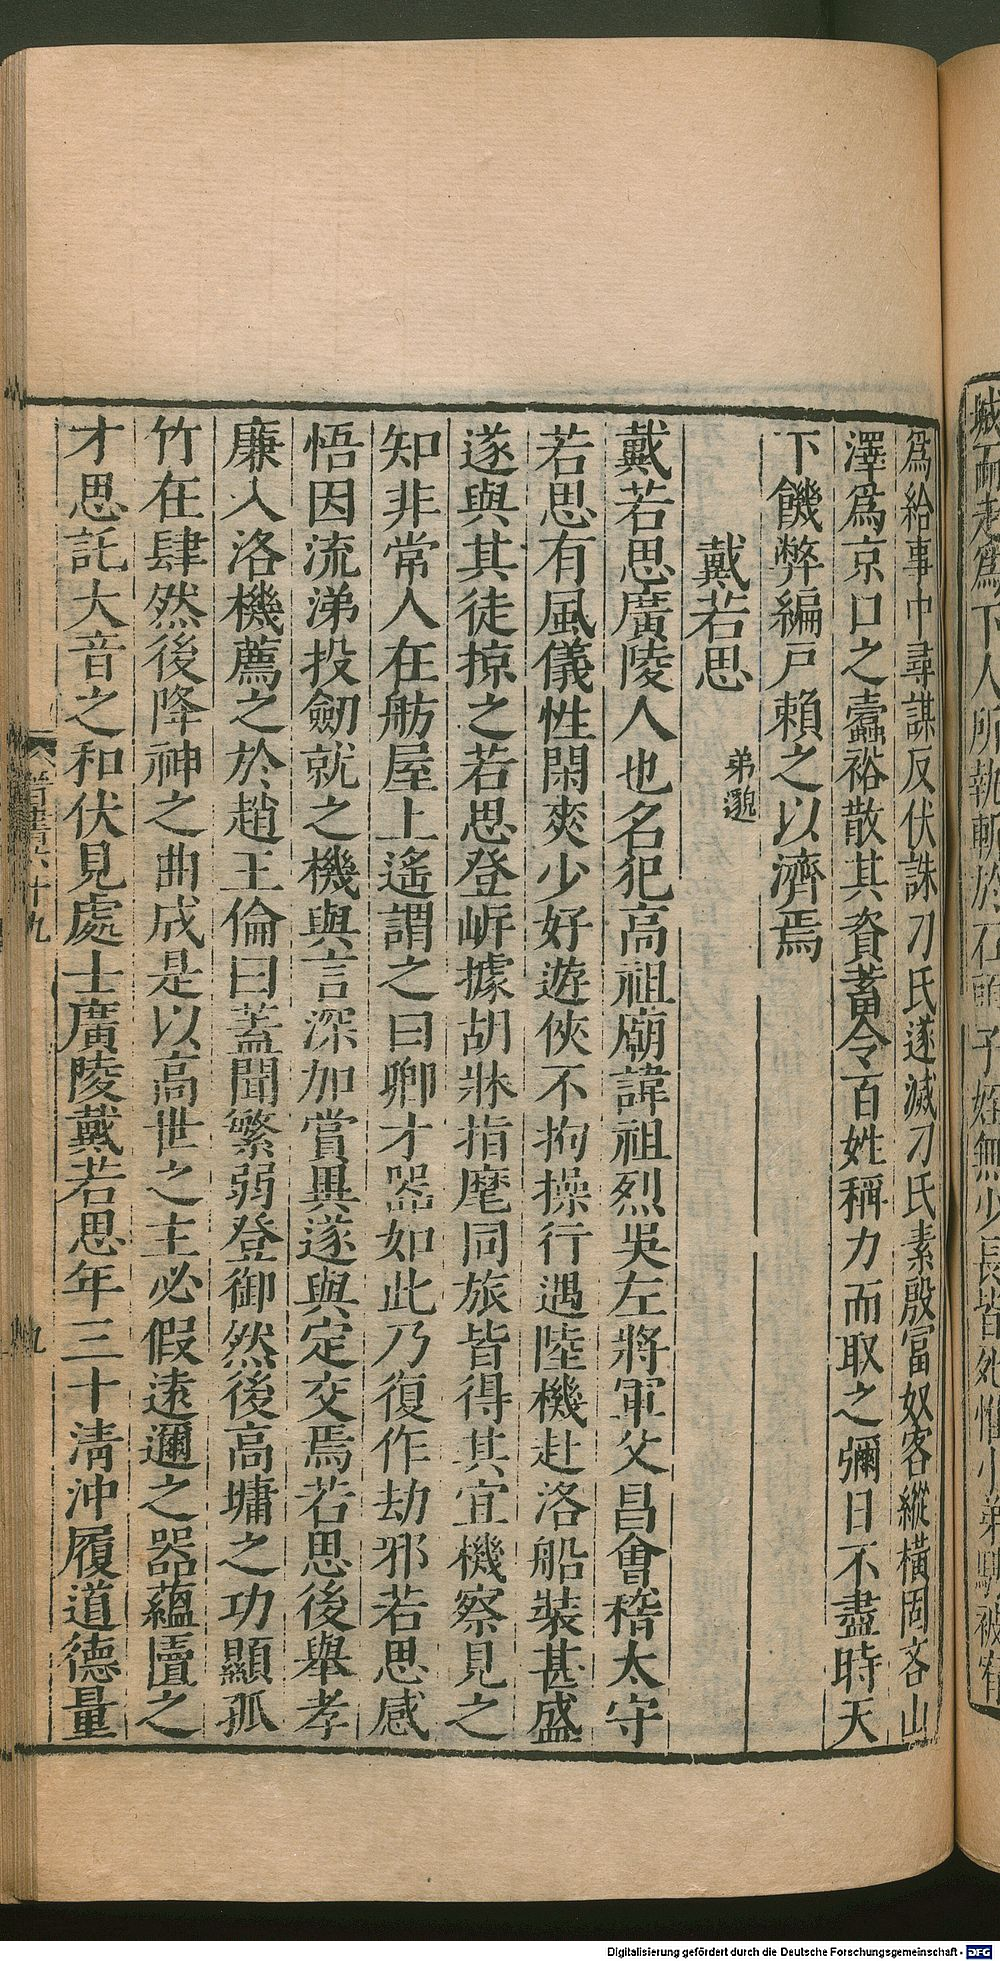 爲給事中尋謀反伏誅刁氏遂滅刁氏素殷富奴客縱橫固吝山
澤爲京口之蠹裕散其資蓄令百姓稱力而取之彌日不盡時天
下饑弊編戸賴之以濟焉
戴若思 弟邈
戴若思廣陵人也名犯高祖廟諱祖烈吳左將軍父昌會稽太守
若思有風儀性閑爽少好遊俠不拘操行遇陸機赴洛船裝甚盛
遂與其徒掠之若思登岍據胡牀指麾同旅皆得其宜機察見之
知非常人在舫屋上遙謂之曰卿才器如此乃復作劫邪若思感
悟因流涕投劒就之機與言深加賞異遂與定交焉若思後舉孝
廉入洛機薦之於趙王倫曰蓋聞繁弱登御然後高墉之功顯孤
竹在肆然後降神之曲成是以高世之主必假遠邇之器蘊匵之
才思託大音之和伏見處士廣陵戴若思年三十淸沖履道德量
晉書六十九
九
城而走爲下人所執斬於石頭子姪無少長皆死惟小弟騁被宥
Digitalisierung gefördert durch die Deutsche Forschungsgemeinschaft - DFG